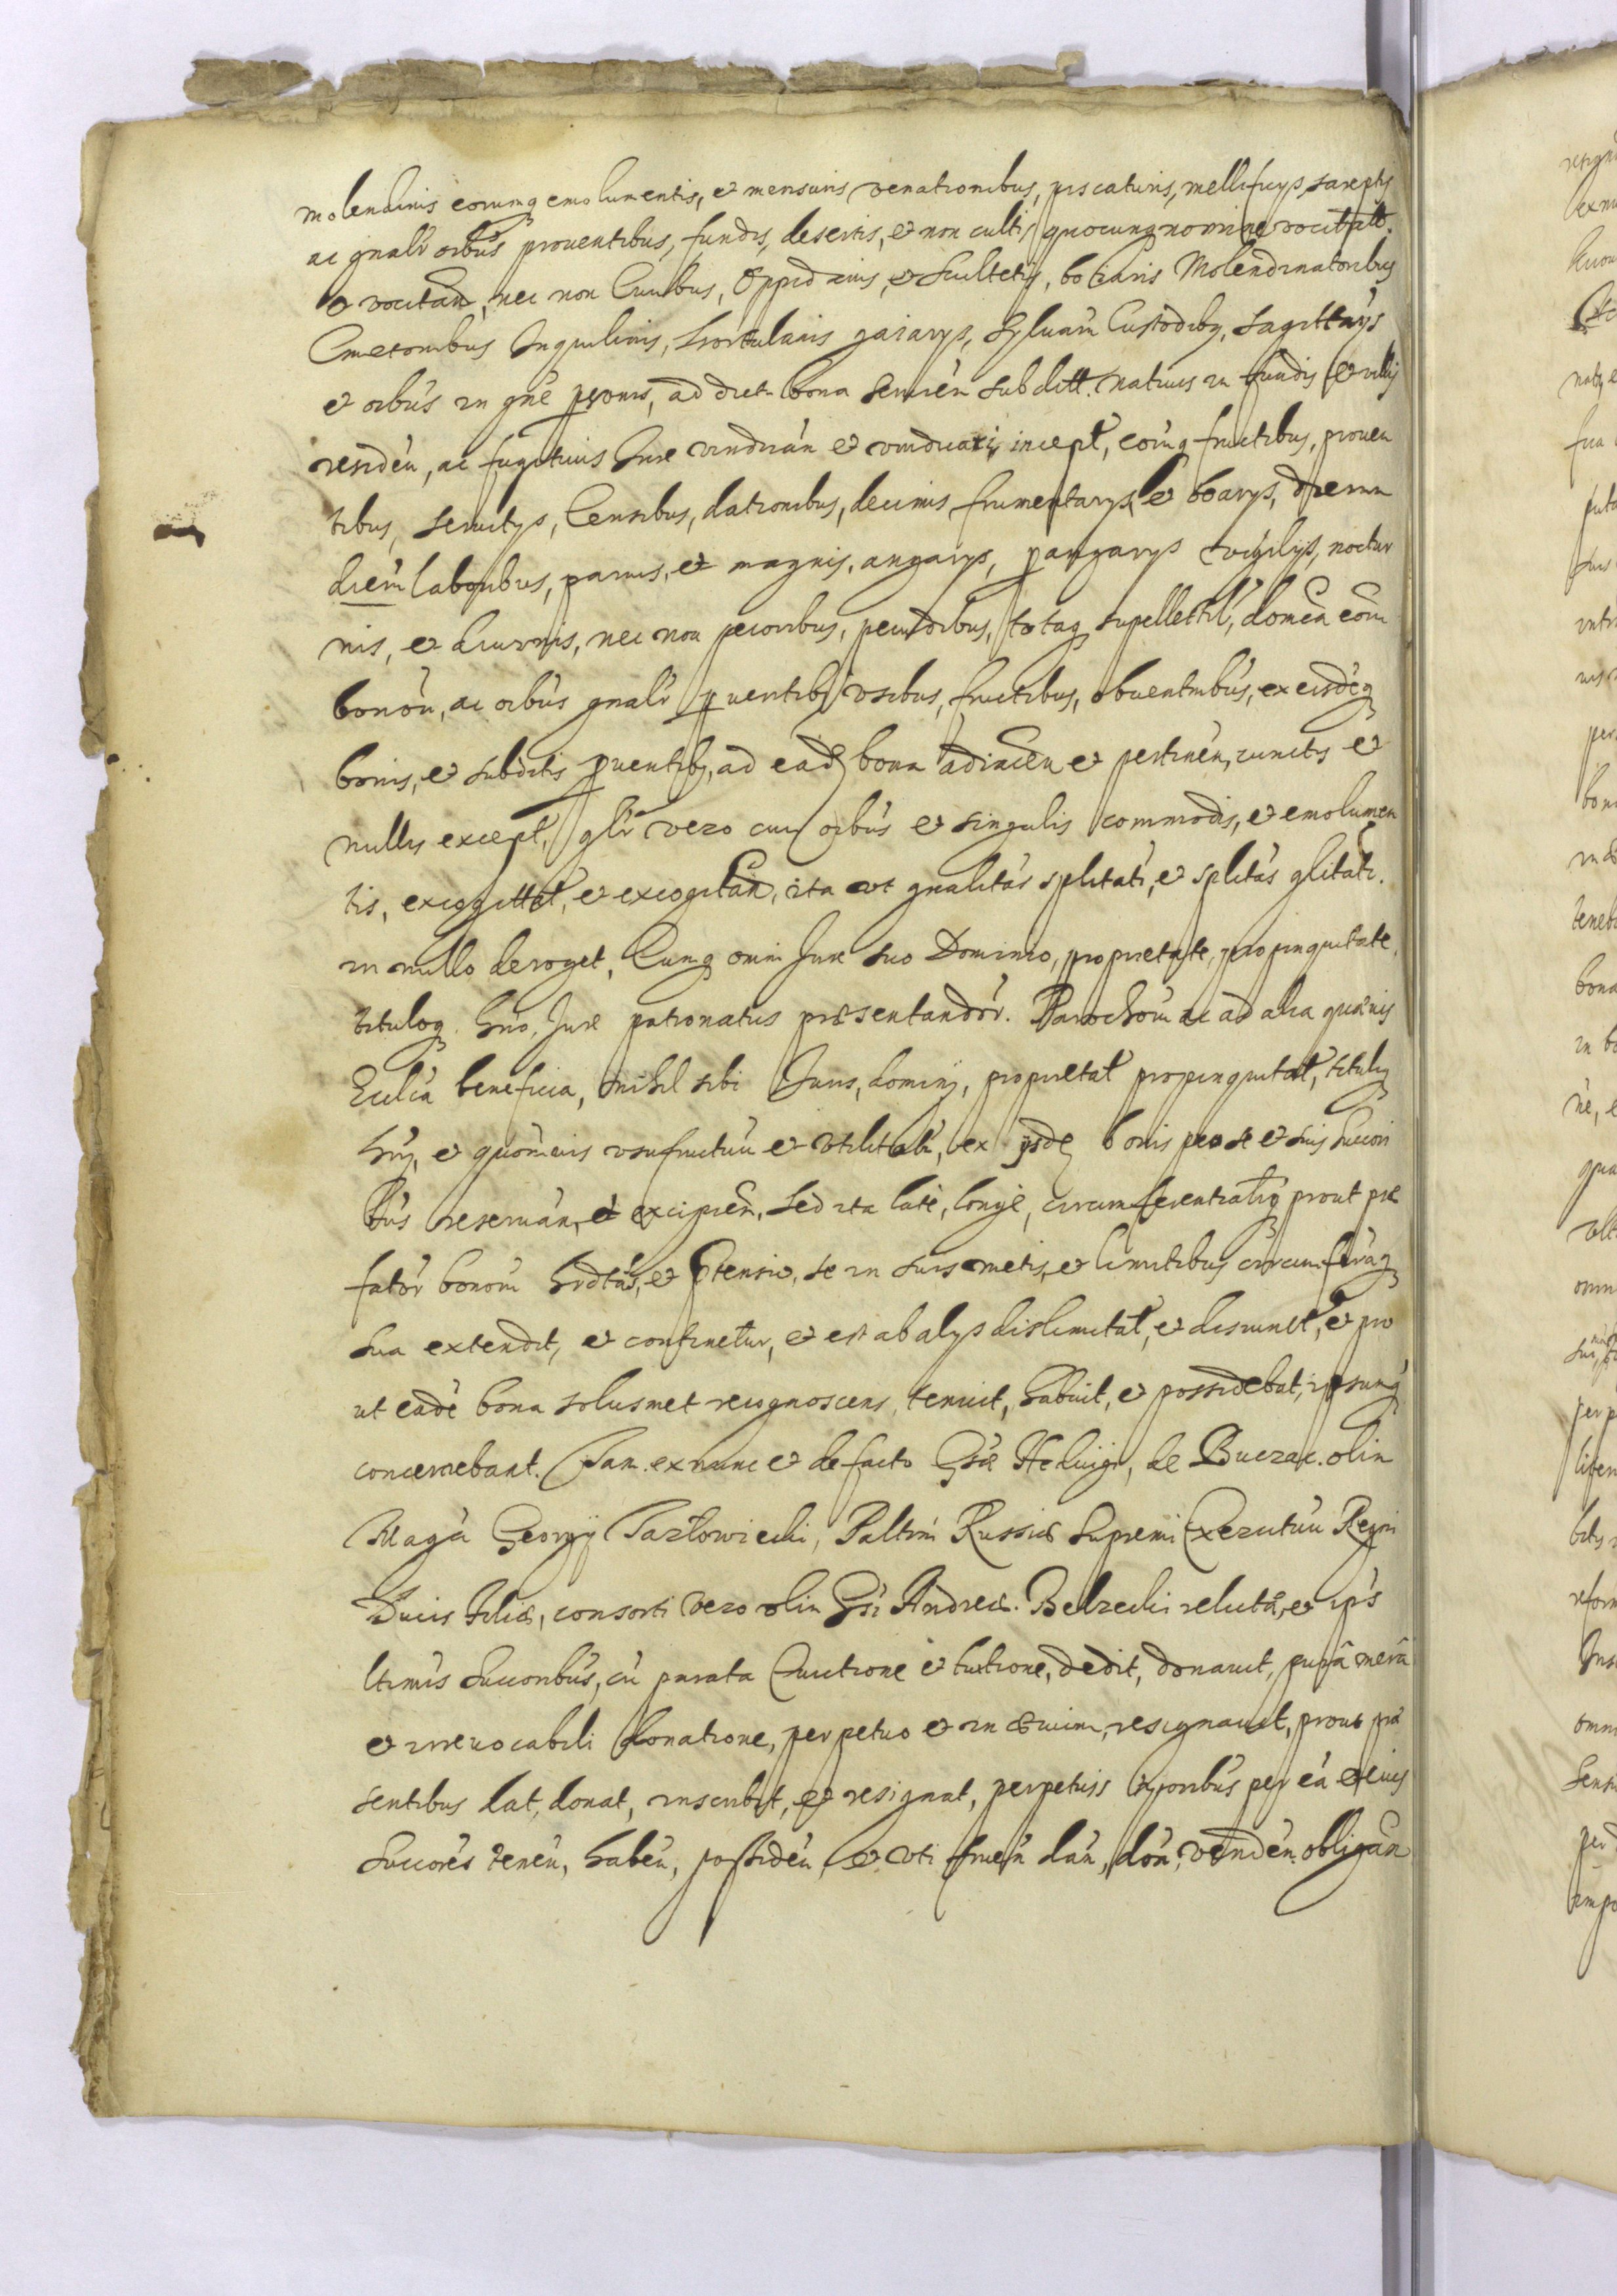 molendinis eorumq emolumentis, et mensuris venationibus, piscaturis, mellificys sareptis
ac gnalr oibus prouentibus, fundis, desertis, et non cultis quocunq nomine vocitatt.
et vocitan, nec non Ciuibus, Oppidanis, et Scultetis, bojaris Molendinatoribus
Cmetonibus Inquilinis, hortulanis gaiarys, syluarū Custodibq, sagittarys
et oibus in gne psonis, ad dict. bona seruien subditt. natiuis in fundis et villis
residen, ac fugitiuis Jure vindican et vindicari incept, eorūq fructibus, prouen
tibus, seruitys, Censibus, dationibus, decimis frumentarys et boarys, dierum
diem laboribus, paruis, et magnis, angarys, pangarys vigilys, noctur
nis, et diurnis, nec non pecoribus, pecudibus, totaq supellectil, domca eorū
bonorū, ac oibus gnalr puentibq vsibus, fructibus, obuentnibus, ex eisdeq
bonis, et subditis puentibq, ad ead bona adiacen et pertinen, cunctis et
nullis except, glr vero cum oibus et singulis commodis, et emolumen
tis, excogittat, et excogitan, ita vt gnalitas splitati, et splitas glitati.
in nullo deroget, Cumq omni Jure suo Dominio, proprietate, propinquitate,
tituloq hrio, Jure patronatus præsentandor. Parochorū ac ad alia quæuis
Ecclia beneficia, nihil sibi Juris, dominy, proprietat propinquitat, tituliq
hry, et quoruuis vsufructuu et vtilitatū, ex ysde bonis pro se et suis succori
bus reseruan, et excipien, sed ita late, longe, circumferentialrq prout præ
fator bonorū hrdtas, et ptensio, se in suis metis, et limitibus circumferaq
sua extendit, et continetur, et est ab alys dislimitat, et disiunct, et pro
ut eade bona solusmet recognoscens, tenuit, habuit, et possidebat, ipsumq
concernebant. Jam. ex nunc et de facto Gsæ Heduigi, de Buczac. olin
Magci Georgy Jazlowiecki, Paltini Russiæ Supremi Exercituu Regni
Ducis filiæ, consorti vero olin Gsi Andreæ. Belzecki relictæ, et ips
ltimis succoribus, cu parata Euictione et tuitione, dedit, donauit, purâ merâ
et irreuocabili donatione, perpetuo et in æuum, resignauit, prout præ
sentibus dat, donat, inscribit, et resignat, perpetuis tpporibus per ea et eius
succores tenen, haben, possiden, et vti fruen dan, don, venden. obligan